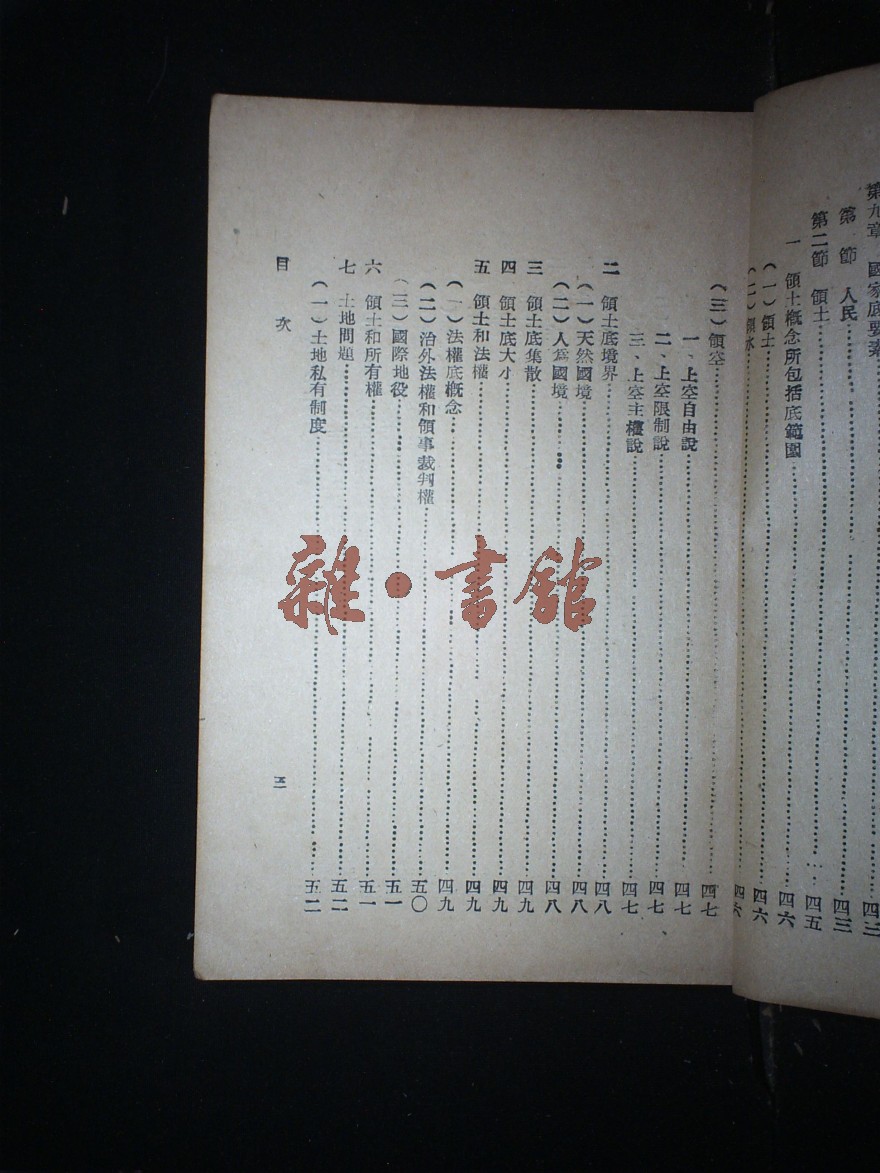 第九章 國家底要素……四三
第一節 人民……四三
第二節 領土……四五
一 領土概念所包括底範圍……四六
(一)領土……四六
(二)領水……四六
(三)領空……四七
一、上空自由說……四七
二、上空限制說……四七
三、上空主權說……四七
二 領土底境界……四八
(一)天然國境……四八
(二)人為國境……四八
三 領土底集散……四九
四 領土底大小……四九
五 領土和法權……四九
(一)法權底概念……四九
(二)治外法權和領事裁判權……五〇
(三)國際地役……五一
六 領土和所有權……五一
七 土地問題……五二
(一)土地私有制度……五二
目次
三
雜·書館